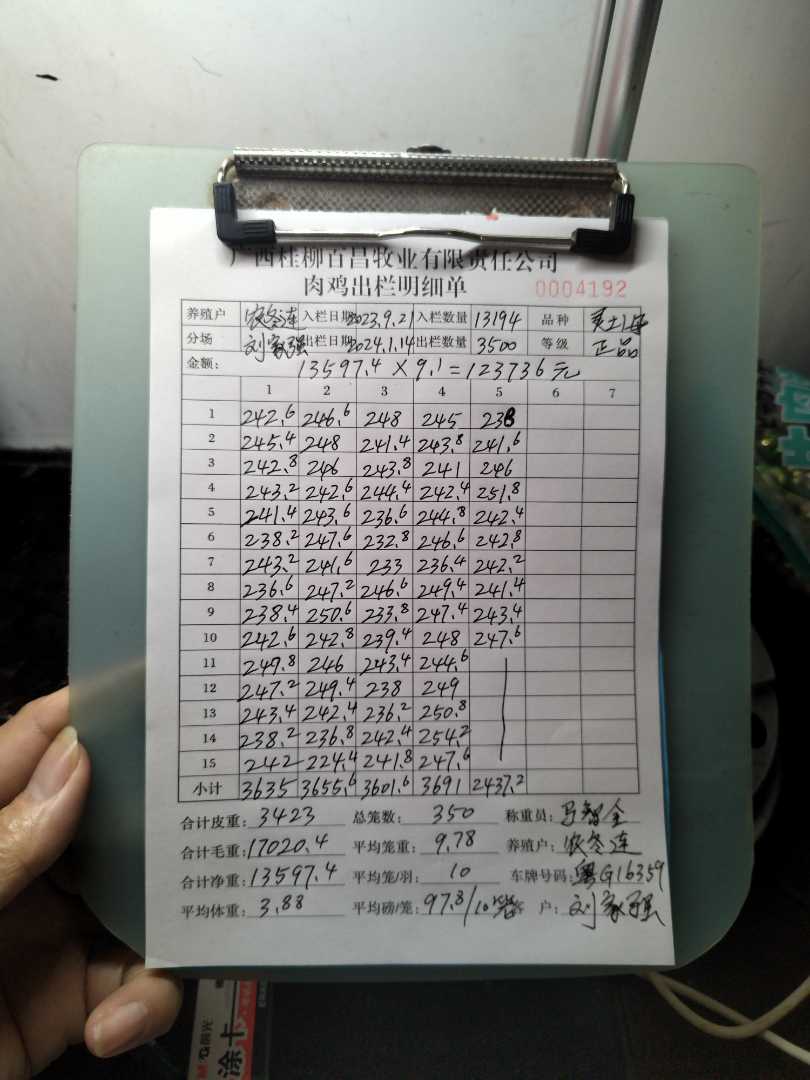 广西桂柳百昌牧业有限责任公司
肉鸡出栏明细单 0004192
养殖户 农冬连 入栏日期 2023.9.21 入栏数量 13194 品种
分场 刘家强 出栏日期 2024.1.14 出栏数量 3500 等级 正品
金额: 13597.4 × 9.1 = 123736 元
1 2 3 4 5 6 7
1 242.6 246.6 248 245 238
2 245.4 248 241.4 243.8 241.6
3 242.8 246 243.8 241 246
4 243.2 242.6 244.4 242.4 251.8
5 241.4 243.6 236.6 244.8 242.4
6 238.2 247.6 232.8 246.6 242.8
7 243.2 241.6 233 236.4 242.2
8 236.6 247.2 246.6 249.4 241.4
9 238.4 250.6 233.8 247.4 243.4
10 242.6 242.8 239.4 248 247.6
11 249.8 246 243.4 244.6
12 247.2 249.4 238 249
13 243.4 242.4 236.2 250.8
14 238.2 236.8 242.4 254.2
15 242 224.4 241.8 247.6
小计 3635 3655.6 3601.6 3691 2437.2
合计皮重: 3423 总笼数: 350 称重员: 马智全
合计毛重: 17020.4 平均笼重: 9.78 养殖户: 农冬连
合计净重: 13597.4 平均笼/羽: 10 车牌号码: 粤G16359
平均体重: 3.88 平均磅/笼: 97.8/10 户: 刘家强
M&G晨光
涂卡